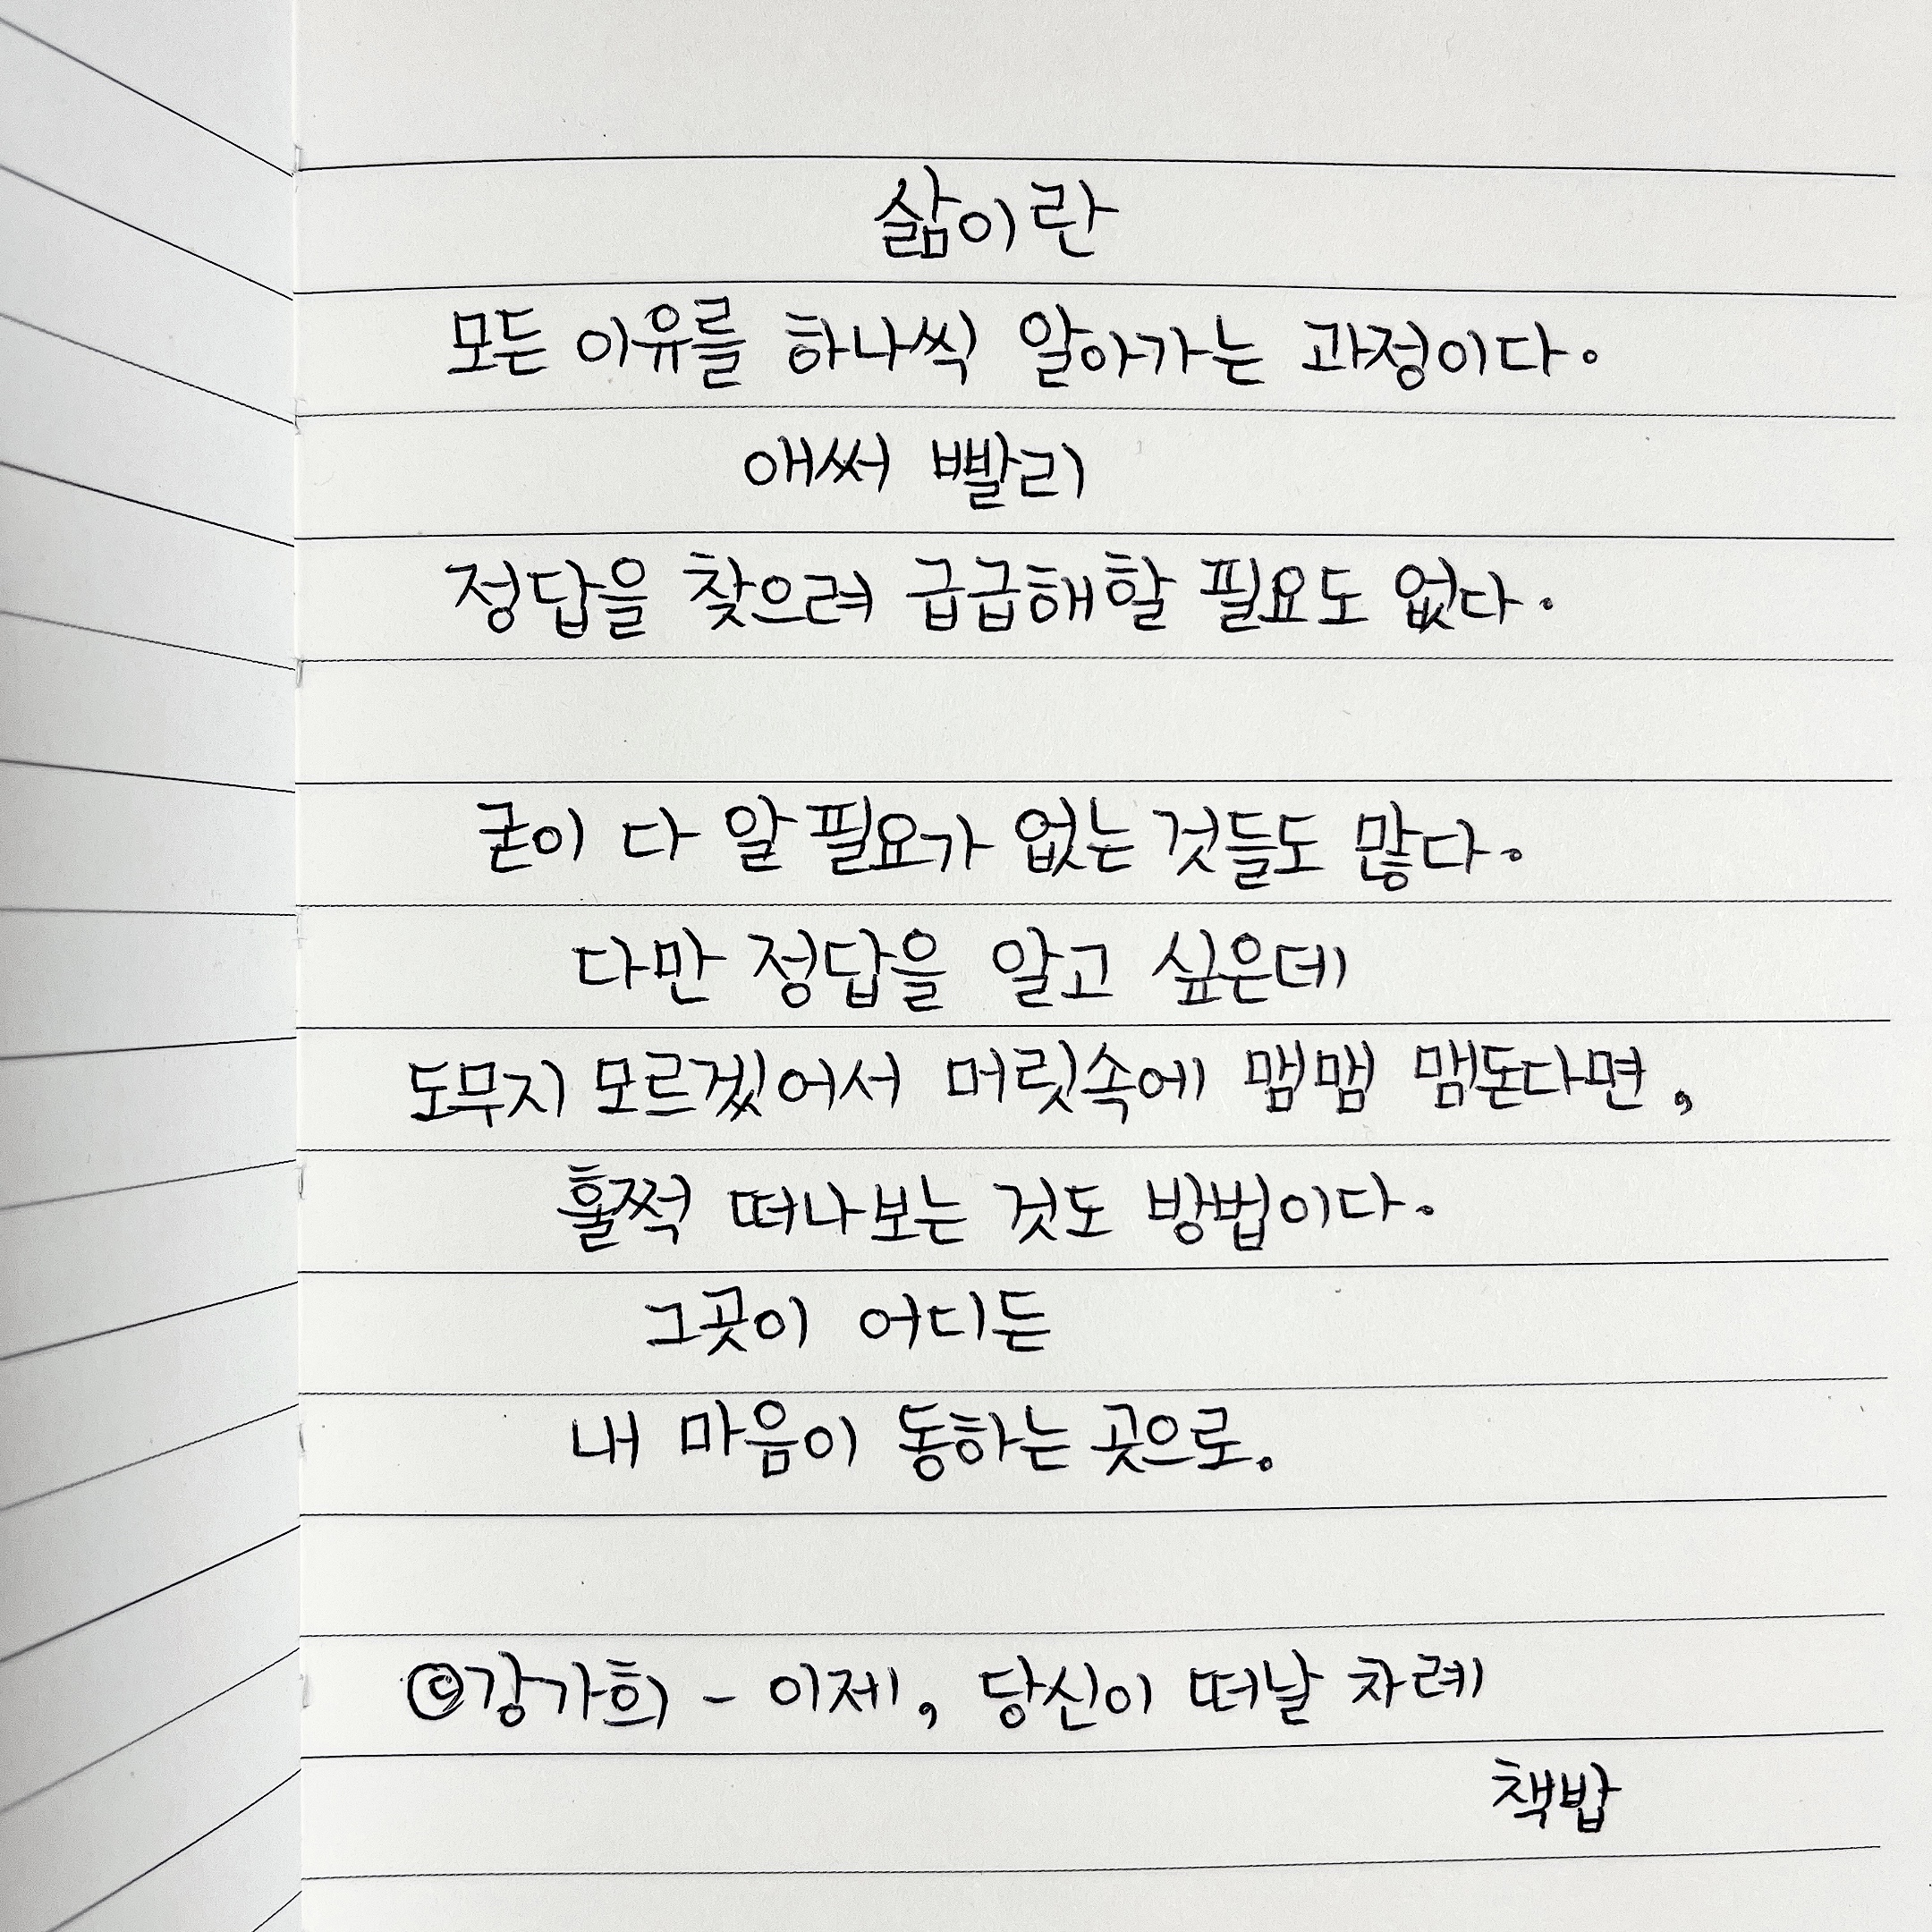 삶이란
모든 이유를 하나씩 알아가는 과정이다.
애써 빨리
정답을 찾으려 급급해할 필요도 없다.
굳이 다 알 필요가 없는 것들도 많다.
다만 정답을 알고 싶은데
도무지 모르겠어서 머릿속에 맴맴 맴돈다면,
훌쩍 떠나보는 것도 방법이다.
그곳이 어디든
내 마음이 동하는 곳으로.
©강가희 - 이제, 당신이 떠날 차례
책밥